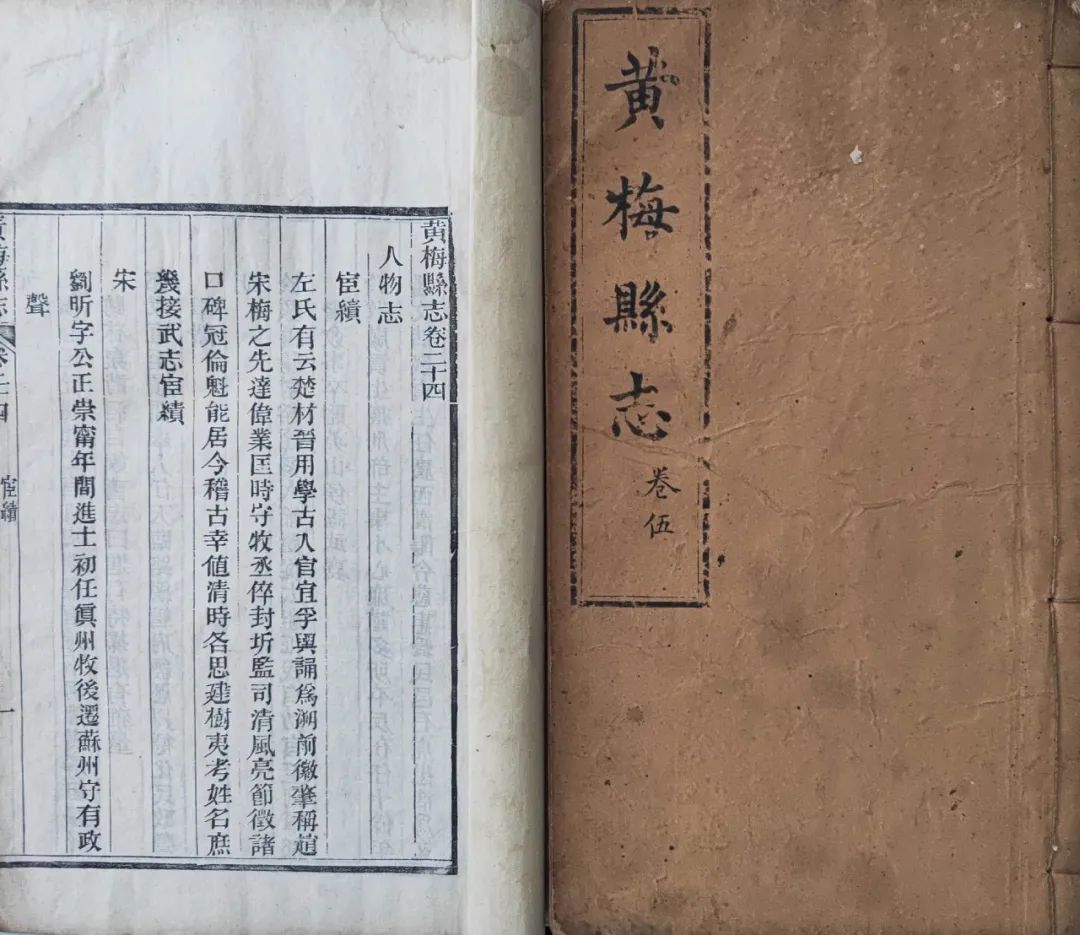 黄梅縣志
卷伍
黄梅縣志卷二十四
人物志
宦績
左氏有云楚材晉用學古入官宜孚輿誦爲溯前徽肇稱趙
宋梅之先達偉業匡時守牧丞倅封圻監司清風亮節徵諸
口碑冠倫魁能居今稽古幸値清時各思建樹夷考姓名庶
幾接武志宦績
宋
劉昕字公正崇甯年間進士初任眞州牧後遷蘇州守有政
聲
黄梅縣志
卷二十四
宦績
一